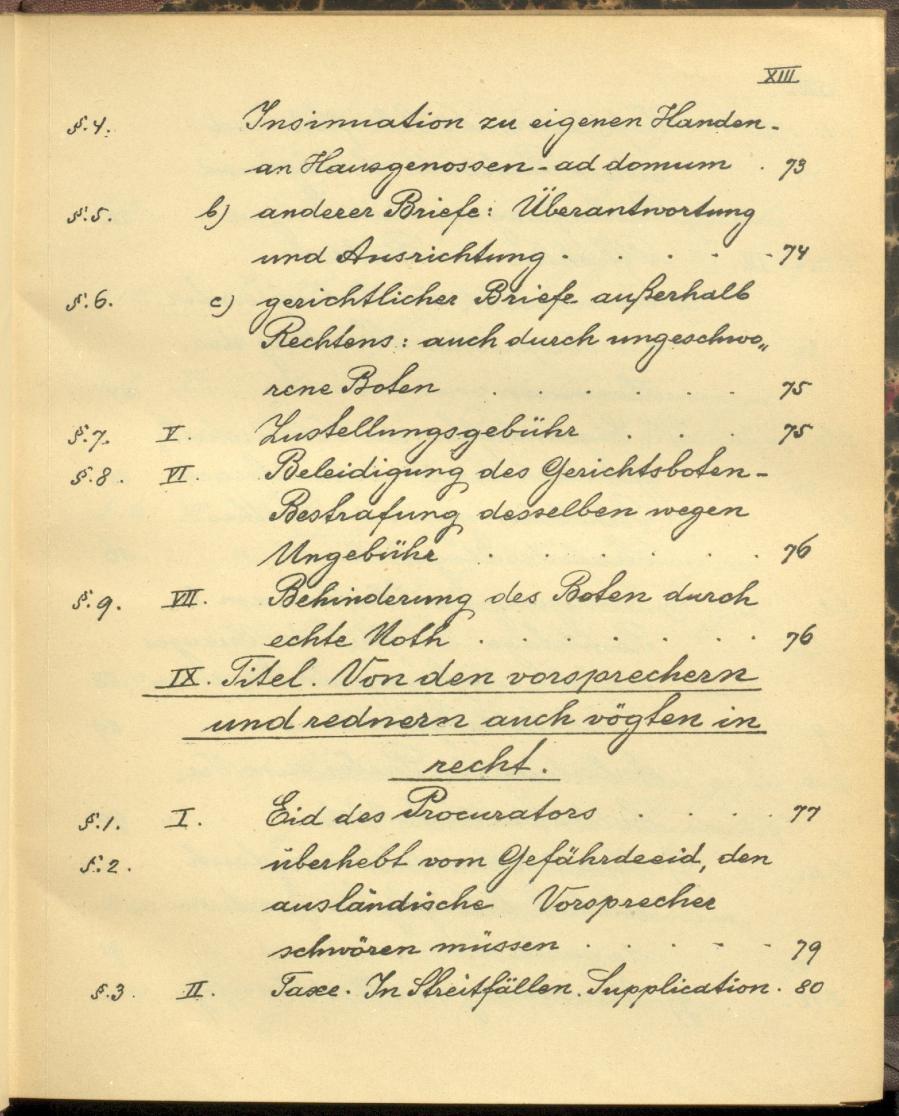 XIII
§.4. Insinuation zu eigenen Handen-
an Hausgenossen - ad domum . 73
§.5. b) anderer Briefe: Überantwortung
und Ausrichtung . . . . . 74
§.6. c) gerichtlicher Briefe außerhalb
Rechtens: auch durch ungeschwo„
rene Boten . . . . 75
§.7. V. Zustellungsgebühr . . . 75
§.8. VI. Beleidigung des Gerichtsboten-
Bestrafung desselben wegen
Ungebühr . . . . . . 76
§.9. VII. Behinderung des Boten durch
echte Noth . . . . . . . 76
IX. Titel. Von den vorsprechern
und rednern auch vögten in
recht.
§.1. I. Eid des Procurators . . . . 77
§.2. überhebt vom Gefährdeeid, den
ausländische Vorsprecher
schwören müssen . . . . . 79
§.3. II. Taxe. In Streitfällen. Supplication. 80